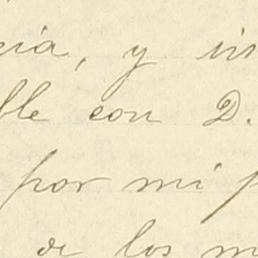 cia, y vis
ble con D.
por mi p
de los m